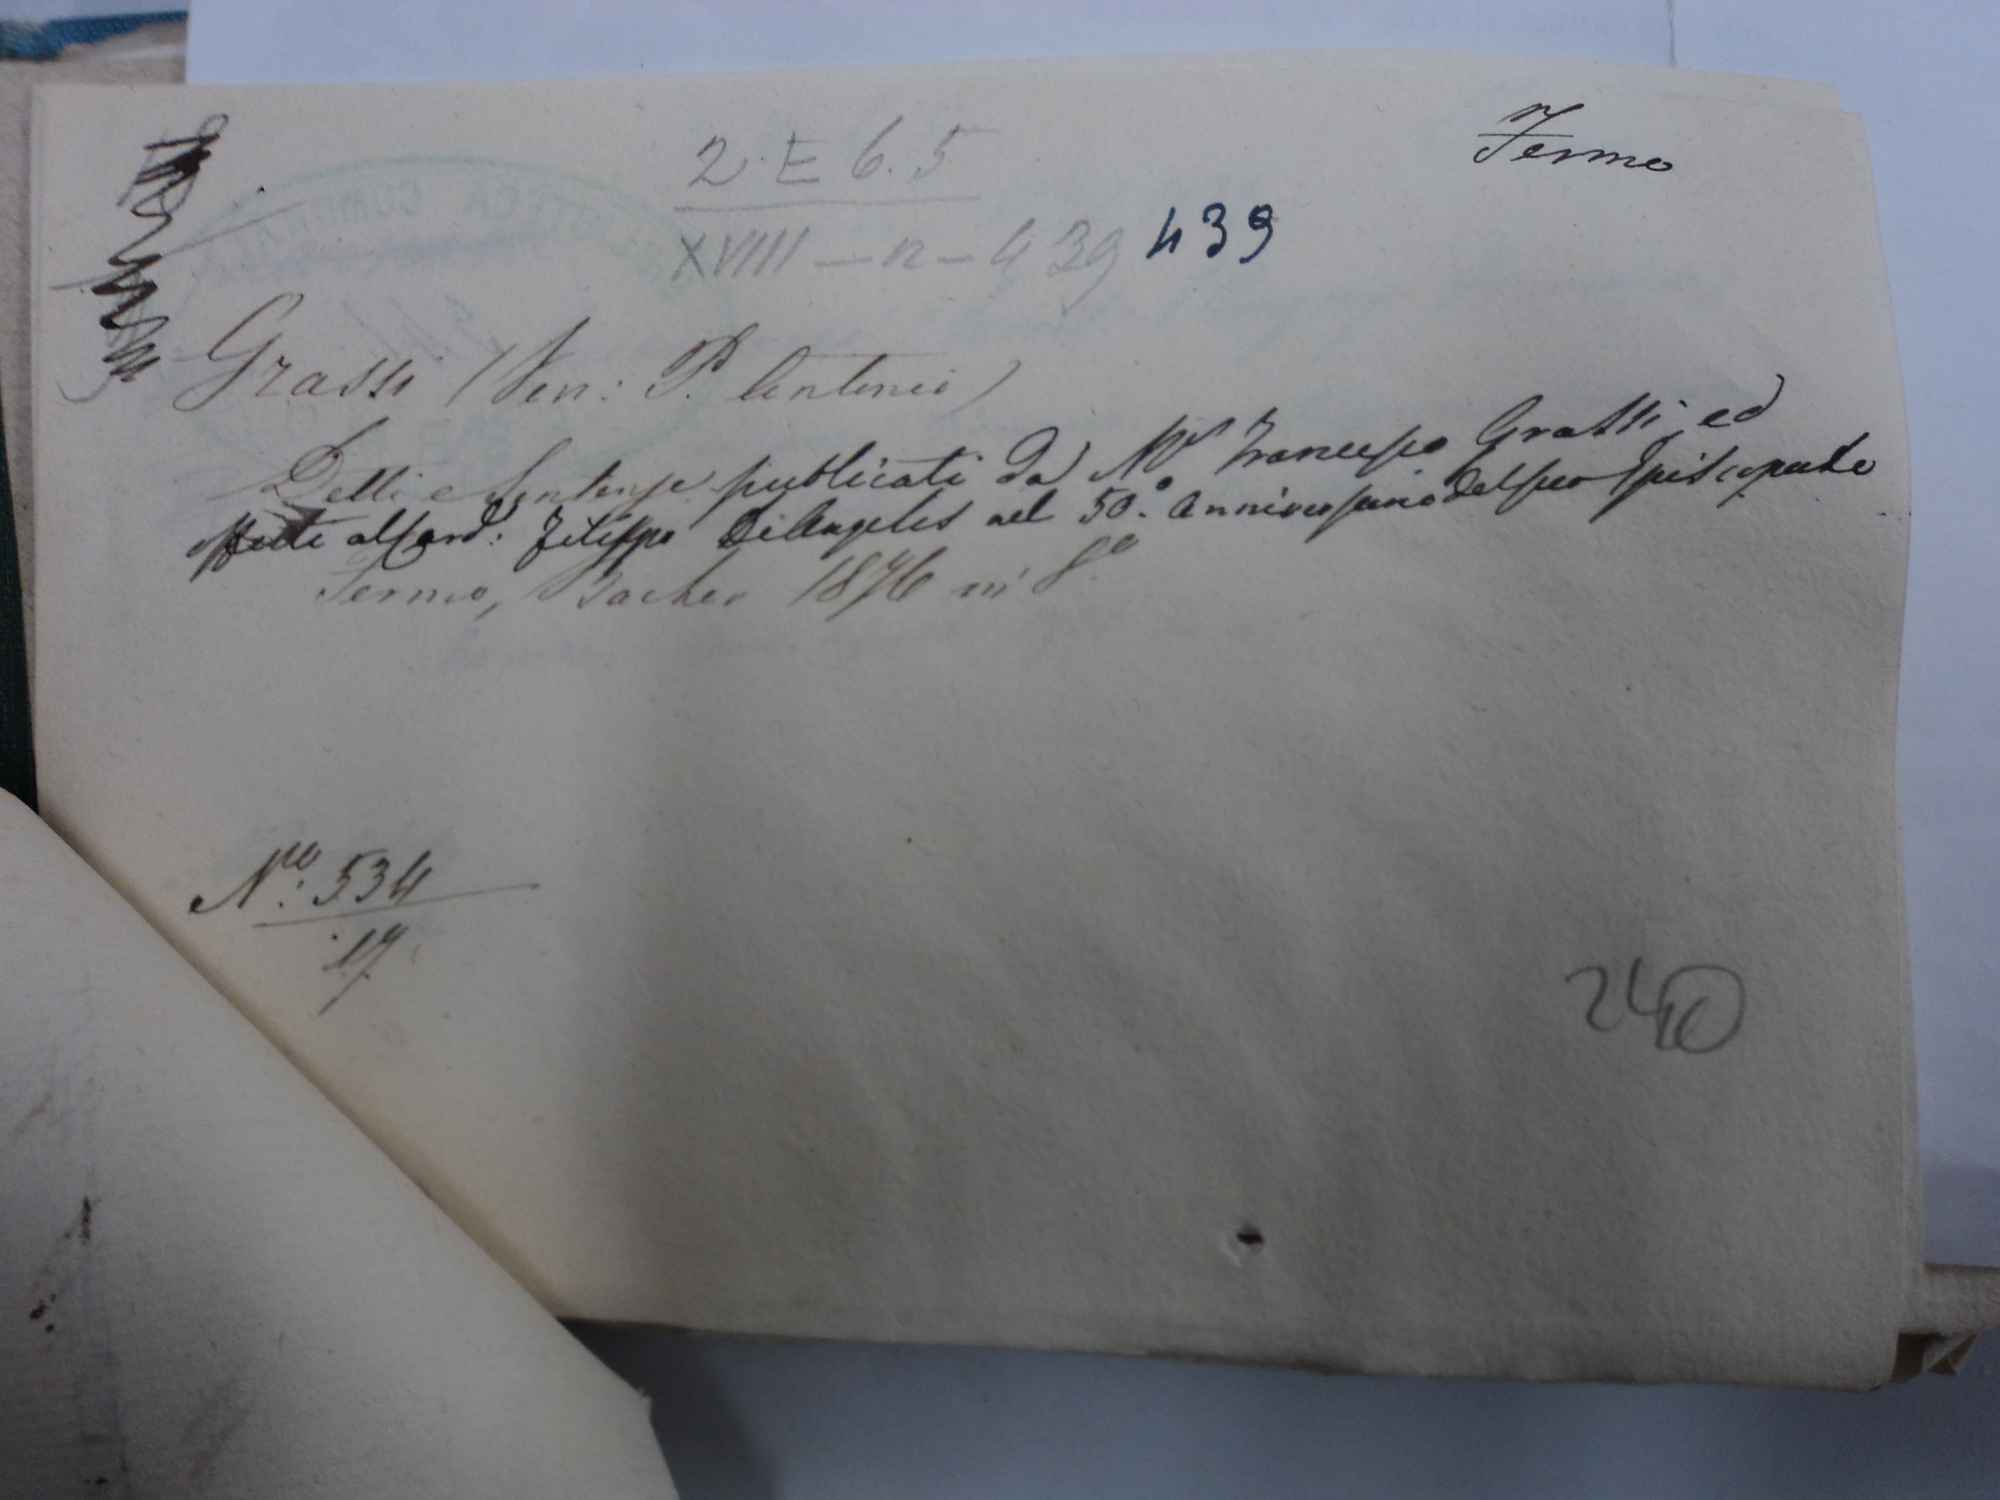 Fermo
2. E 6. 5
XVIII - n - 439 439
Grassi (Ven: P. Antonio)
Detti e Sentenze publicati da Mr Francesco Grassi, ed
offerti al Card: Filippo De Angelis nel 50.° Anniversario del suo Episcopato
Fermo, Bacher 1876 in 8.°
No: 534
17
240